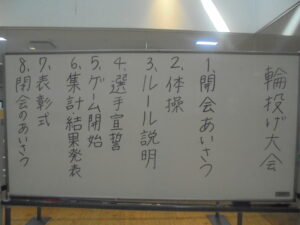 輪投げ大会
1.開会あいさつ
2.体操
3.ルール説明
4.選手宣誓
5.ゲーム開始
6.集計結果発表
7.表彰式
8.閉会のあいさつ